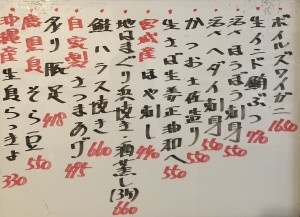 ボイルズワイガニ 1650
生インド鮪ぶつ 770
活〆ほうぼう刺身 550
活〆ヘダイ刺身 550
かつお土佐造り 550
生さば生姜正油和へ 550
宮城産 ほや刺し 440
地はまぐり浜焼き・酒蒸し(3ケ) 660
鮭ハラス焼き 660
自家製 さつまあげ 495
炙り豚足 418
鹿児島産 そら豆 550
沖縄産 生島らっきょ 330